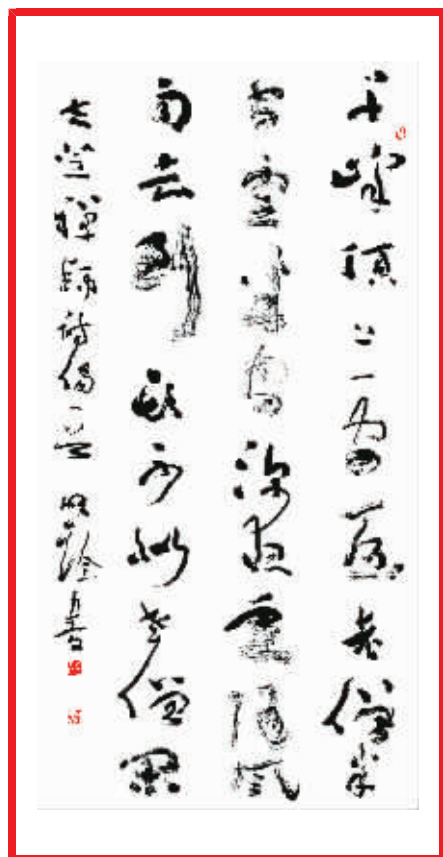 千峰頂上一間屋老僧半
間雲半間夜雲隨風
雨去到頭不似老僧閑
志芝禪師詩偈一首 書